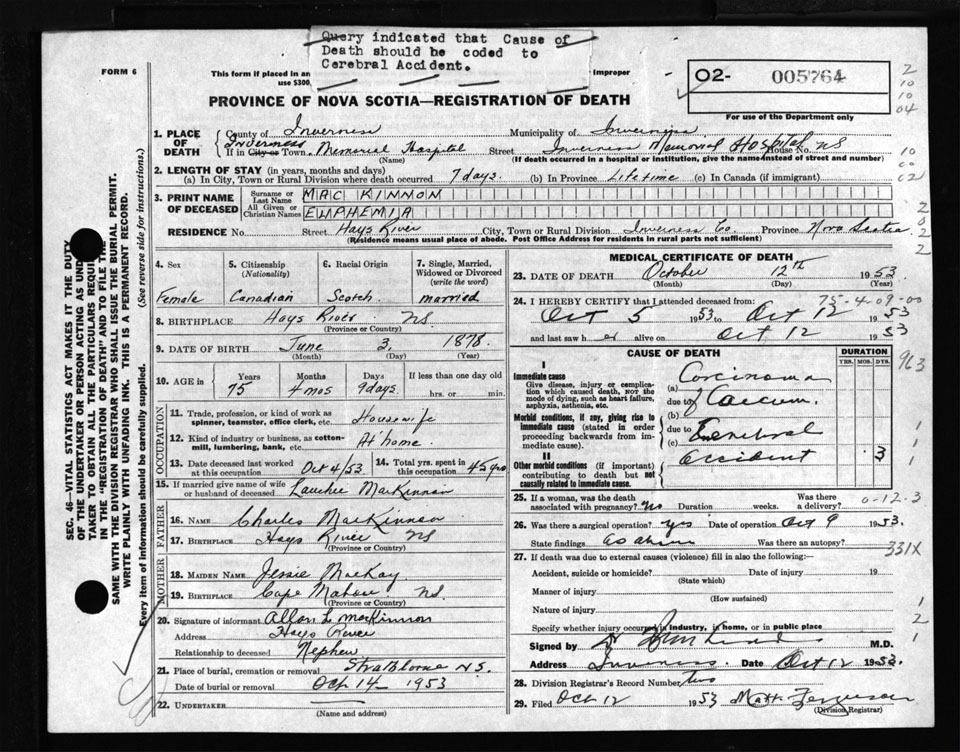 Query indicated that Cause of
Death should be coded to
Cerebral Accident.
FORM 6
This form if placed in an
improper
use $300
02- 005764
PROVINCE OF NOVA SCOTIA—REGISTRATION OF DEATH
For use of the Department only
2
10
10
04
10
1. PLACE OF DEATH
County of Inverness Municipality of Inverness
Inverness
If in City or Town Memorial Hospital Street Inverness Memorial Hospital House No. NS
(Name) (If death occurred in a hospital or institution, give the name instead of street and number)
2. LENGTH OF STAY (in years, months and days)
(a) In City, Town or Rural Division where death occurred 7 days. (b) In Province Lifetime (c) In Canada (if immigrant)
3. PRINT NAME OF DECEASED
Surname or Last Name MAC KINNON
All Given or Christian Names EUPHEMIA
RESIDENCE No. Street Hays River City, Town or Rural Division Inverness Co. Province Nova Scotia
(Residence means usual place of abode. Post Office Address for residents in rural parts not sufficient)
4. Sex Female
5. Citizenship (Nationality) Canadian
6. Racial Origin Scotch
7. Single, Married, Widowed or Divorced (write the word) married
8. BIRTHPLACE Hays River NS
(Province or Country)
9. DATE OF BIRTH June 3, 1878
(Month) (Day) (Year)
10. AGE in Years 75 Months 4 mos Days 9 days. If less than one day old hrs. or min.
OCCUPATION
11. Trade, profession, or kind of work as spinner, teamster, office clerk, etc. Housewife
12. Kind of industry or business, as cotton-mill, lumbering, bank, etc. At home.
13. Date deceased last worked at this occupation Oct 4/53
14. Total yrs. spent in this occupation 45 yrs
15. If married give name of wife or husband of deceased Lauchie MacKinnon
FATHER
16. NAME Charles MacKinnon
17. BIRTHPLACE Hays River NS
(Province or Country)
MOTHER
18. MAIDEN NAME Jessie MacKay
19. BIRTHPLACE Cape Mabou NS.
(Province or Country)
20. Signature of informant Allan L. MacKinnon
Address Hays River
Relationship to deceased Nephew
21. Place of burial, cremation or removal Strathlorne N.S.
Date of burial or removal Oct 14 1953
22. UNDERTAKER
(Name and address)
MEDICAL CERTIFICATE OF DEATH
23. DATE OF DEATH October 12th 1953
(Month) (Day) (Year)
75-4-09-00
24. I HEREBY CERTIFY that I attended deceased from:
Oct 5 1953 to Oct 12 1953
and last saw her alive on Oct 12 1953
CAUSE OF DEATH
DURATION
YRS. MOS. DYS.
963
I
Immediate cause
Give disease, injury or complication which caused death, NOT the mode of dying, such as heart failure, asphyxia, asthenia, etc.
(a) Carcinoma
due to of Caecum.
Morbid conditions, if any, giving rise to immediate cause (stated in order proceeding backwards from immediate cause).
(b)
due to
(c) Cerebral
II
Other morbid conditions (if important) contributing to death but not causally related to immediate cause.
accident 3
25. If a woman, was the death associated with pregnancy? No Duration weeks. Was there a delivery?
0-12-3
26. Was there a surgical operation? yes Date of operation Oct 9 1953.
State findings as above Was there an autopsy?
331X
27. If death was due to external causes (violence) fill in also the following:—
Accident, suicide or homicide? Date of injury 19
(State which)
Manner of injury
(How sustained)
Nature of injury
Specify whether injury occurred in industry, in home, or in public place
Signed by M.D.
Address Inverness. Date Oct 12 1953.
28. Division Registrar's Record Number two
29. Filed Oct 12 1953 Matt. Ferguson
(Division Registrar)
SEC. 46—VITAL STATISTICS ACT MAKES IT THE DUTY
OF THE UNDERTAKER OR PERSON ACTING AS
TAKER TO OBTAIN ALL THE PARTICULARS
IN THE "REGISTRATION OF DEATH" AND TO FILE THE
SAME WITH THE DIVISION REGISTRAR WHO SHALL ISSUE THE BURIAL PERMIT.
WRITE PLAINLY WITH UNFADING INK. THIS IS A PERMANENT RECORD.
Every item of information should be carefully supplied. (See reverse side for instructions.)